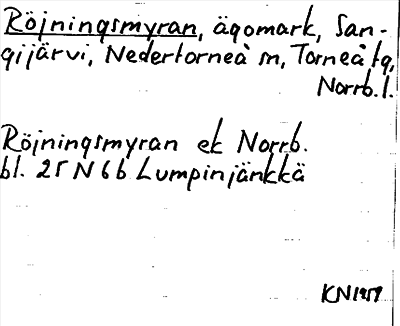 Röjningsmyran, ägomark, San-
gijärvi, Nedertorneå sn, Torneå tg,
Norrb. l.
Röjningsmyran ek Norrb.
bl. 25 N 6 b Lumpinjänkkä
KN 1959